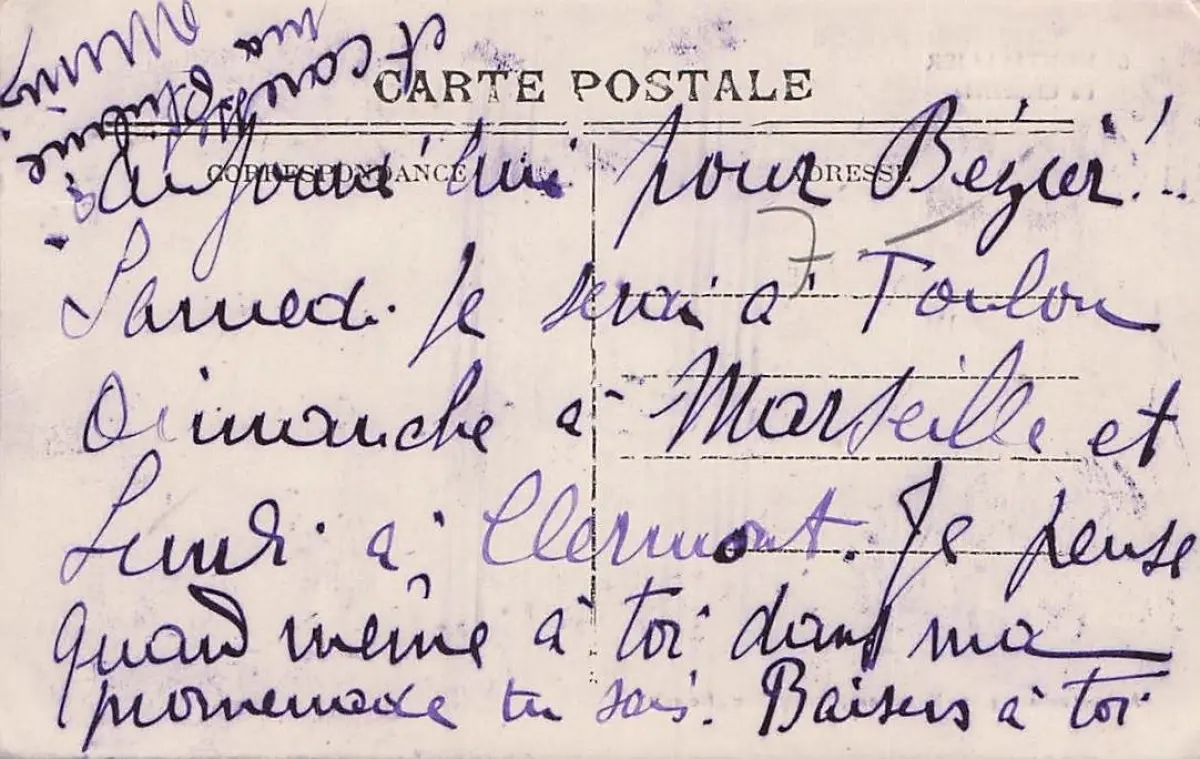 CARTE POSTALE
CORRESPONDANCE
ADRESSE
Aujourd'hui pour Bézier!..
Samedi je serai à Toulon
Dimanche à Marseille et
Lundi à Clermont. Je pense
quand même à toi dans ma
promenade tu sais. Baisers à toi
et
ma